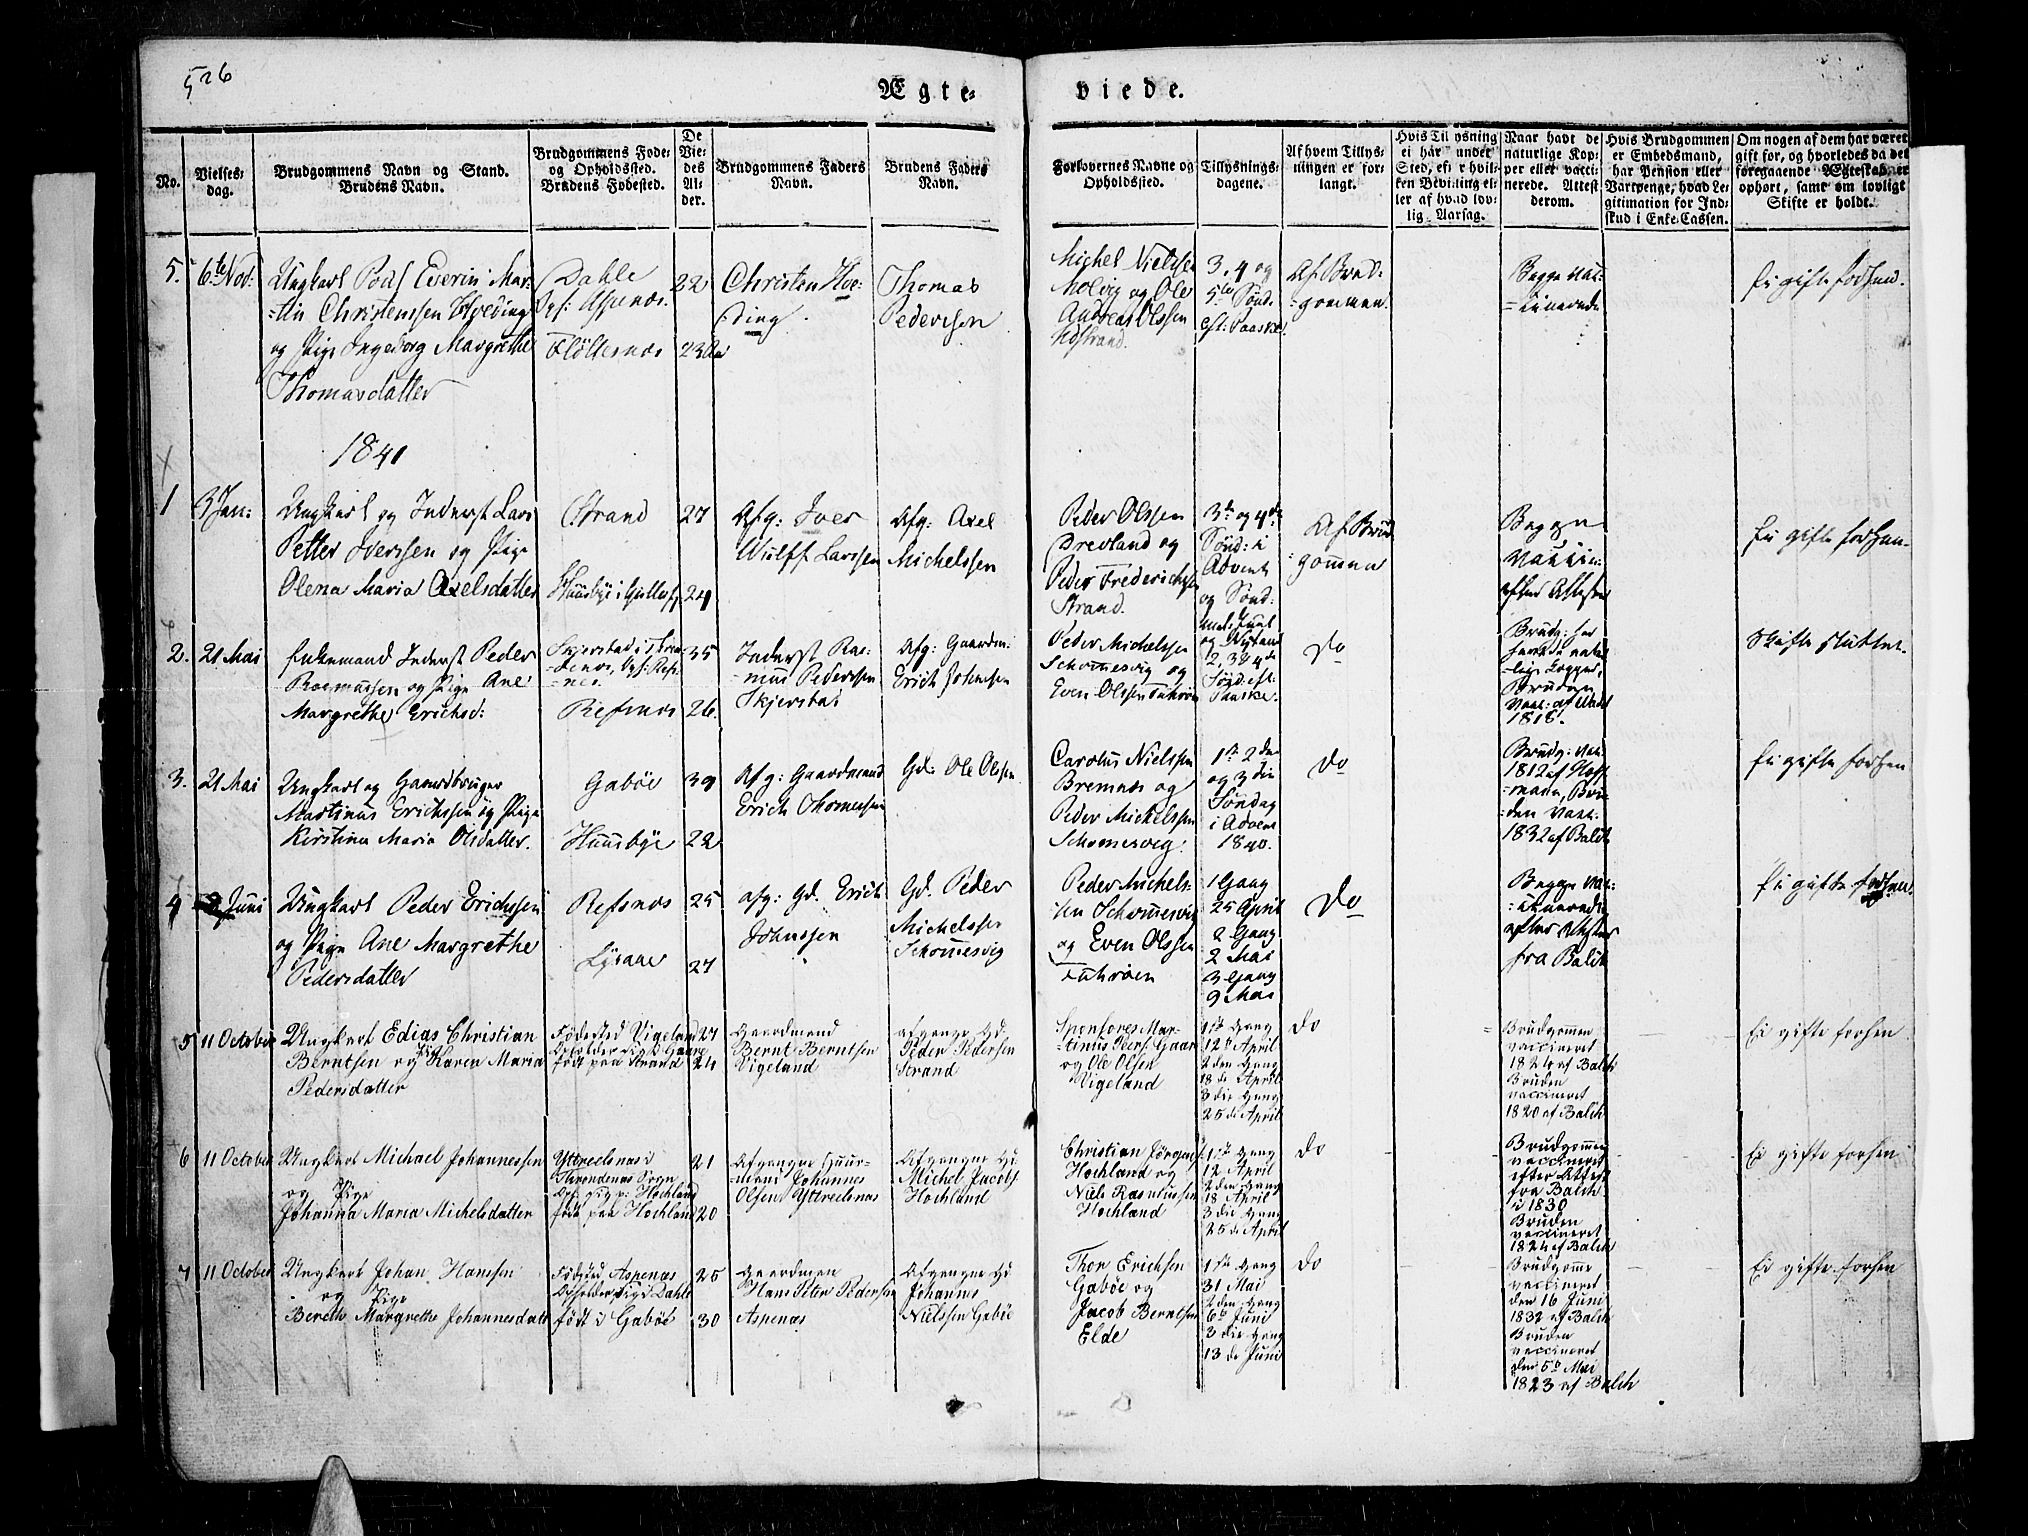 526
Ægte-
viede.
No.
Vielses-
dag.
Brudgommens Navn og Stand.
Brudens Navn.
Brudgommens Føde-
og Opholdssted.
Brudens Fødested.
De
Vie-
des
Al-
der.
Brudgommens Faders
Navn.
Brudens Faders
Navn.
Forlovernes Navne og
Opholdssted.
Tillysnings-
dagene.
Af hvem Tillys-
ningen er for-
langt.
Hvis Tillysning
ei har fundet
Sted, efter hvil-
ken Bevilling el-
ler af hvad lov-
lig Aarsag.
Naar havt de
naturlige Kop-
per eller vacci-
nerede. Attest
derom.
Hvis Brudgommen
er Embedsmand,
har Pension eller
Vartpenge, hvad Le-
gitimation for Ind-
skud i Enke-Cassen.
Om nogen af dem har været
gift før, og hvorledes da det
foregaaende Ægteskab er
ophørt, samt om lovligt
Skifte er holdt.
5.
6te Nov:
Ungkarl Poul Everin Mar-
=tin Christenssen Hveding
og Pige Ingeborg Margrethe
Thomasdatter
Dahle
Aspenæs
Fløttenæs
22
23
Christen Hve-
ding
Thomas
Pederssen
Michel Nielssen
Molvig og Ole
Andreas Olssen
3, 4 og
5te Sønd:
eft: Paaske.
Af Brud-
=gommen.
Begge vac-
=cinerede
Ei gifte forhen.
1841
1
3 Jan:
Ungkarl og Inderst Lars
Petter Iverssen og Pige
Olena Maria Axelsdatter
Strand
Huusbye i
27
24
Afg: Iver
Wulff Larssen
Afg: Axel
Michelssen
Peder Olssen
Drevland og
Peder Frederichssen
Strand.
3de og 4de
Sønd: i
Advent
og Sønd:
mel: Juul
og Nytaar
Af Brud-
gommen
Begge
vaccin:
efter Attester
Ei gifte forhen.
2.
21 Mai
Enkemand Inderst Peder
Rasmussen og Pige Ane
Margrethe Erichsd:
Skjerstad i
Refsnæs
35
26.
Inderst Ras-
mus Pederssen
Skjerstad
Afg: Gaardm:
Erich Johnssen
Peder Michelssen
Schommesvig og
Even Olssen
2, 3 & 4de
Sønd: eft:
Paaske.
Do
Brudg: har
havt de natur-
lige Kopper,
Bruden
Vacc:
1818.
Skifte sluttet.
3.
21 Mai
Ungkarl og Gaardbruger
Martinus Erichssen og Pige
Kirstina Maria Olsdatter.
Gabøe
Huusbye
39
22
Afg: Gaardmand
Erich Thomessen
Gd: Ole Olssen
Carolus Nielssen
Bremnæs og
Peder Michelssen
Schomesvig.
1ste 2den
og 3die
Søndag
i Advent
1840.
Do
Brudg: vac:
1812 af Hoff-
=mann, Bru-
=den vacc:
1832 af Balch
Ei gifte forhen
4
2 Juni
Ungkarl Peder Erichssen
og Pige Ane Margrethe
Pedersdatter
Refsnæs
Lysaae
25
27
afg: Gd. Erich
Johnssen
Gd. Peder
Michelssen
Schomesvig
Peder Michels-
sen Schomesvig
og Even Olssen
1 Gang
25 April
2 Gang
2 Mai
3 Gang
9 Mai
Do
Begge vac-
=cinerede
efter Attester
fra Balch
Ei gifte forhen.
5
11 October
Ungkarl Edias Christian
Berntsen og Pige Karen Maria
Pedersdatter
Fødested Vigeland
født paa Strand
27
24
Gaardmand
Bernt Berntsen
Vigeland
afgangne Gd.
Peder Pedersen
Strand
Sponsores Mar-
tinus Peders. Gaare
og Ole Olsen
Vigeland
1ste Gang
12te April
2den Gang
18de April
3die Gang
25de April
do
Brudgommen
vaccineret
1824 af Balch
Bruden
vaccineret
1820 af Balch
Ei gifte forhen
6
11 October
Ungkarl Michael Johannessen
og Pige
Johanna Maria Michelsdatter
Yttreelsnæs i
Throndenæs Sogn
Hochland
født paa Hochland
21
20
Afgangne Huus-
mand Johannes
Olsen Yttreelsnæs
Afgangne Gd.
Michel Jacobs.
Hochland
Christian Jørgens.
Hochland og
Niels Rasmussen
Hochland
1ste Gang
12 April
2den Gang
18 April
3die Gang
25de April
do
Brudgommen
vaccineret
efter Attest
fra Balch
i 1830
Bruden
vaccineret
1824 af Balch
Ei gifte forhen
7
11 October
Ungkarl Johan Hanssen
og Pige
Bereth Margrethe Johannesdatt
Fødested Aspenæs
Opholdersted Dahle
født i Gabøe
25
30
Gaardmen
Hans Peter Pedersen
Aspenæs
Afgangne Gd.
Johannes
Nielssen Gabøe
Thor Erichsen
Gabøe og
Jacob Berntsen
Elde
1ste Gang
31 Mai
2den Gang
6te Juni
3die Gang
13de Juni
do
Brudgomme
vaccineret
den 16 Juni
1832 af Balch
Bruden
vaccineret
den 5te Mai
1823 af Balch
Ei gifte forhen